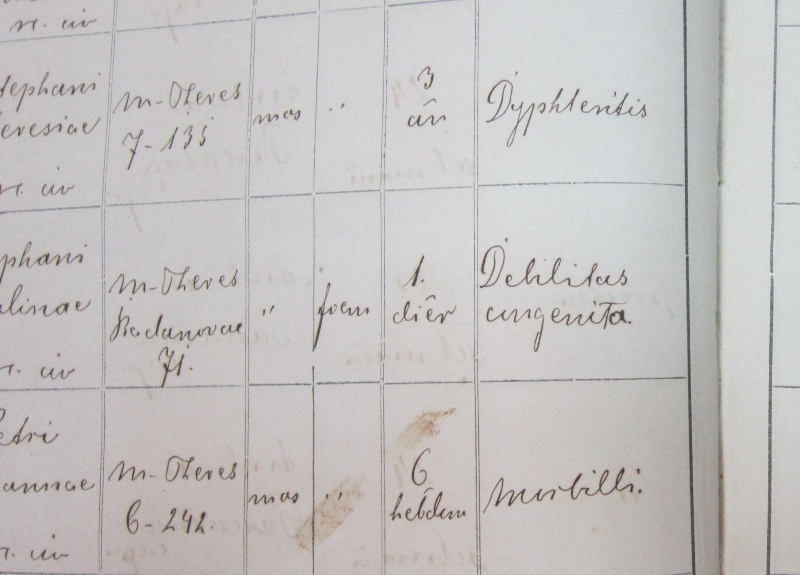 r. civ
tephani
eresiae
r. civ
m-Theres
7-135
mas
"
3
an
Dyphteritis
phani
linae
r. civ
m-Theres
71.
"
foem
1.
dier
Debilitas
congenita.
etri
annae
r. civ
m-Theres
6-242.
mas
"
6
hebdom
Morbilli.